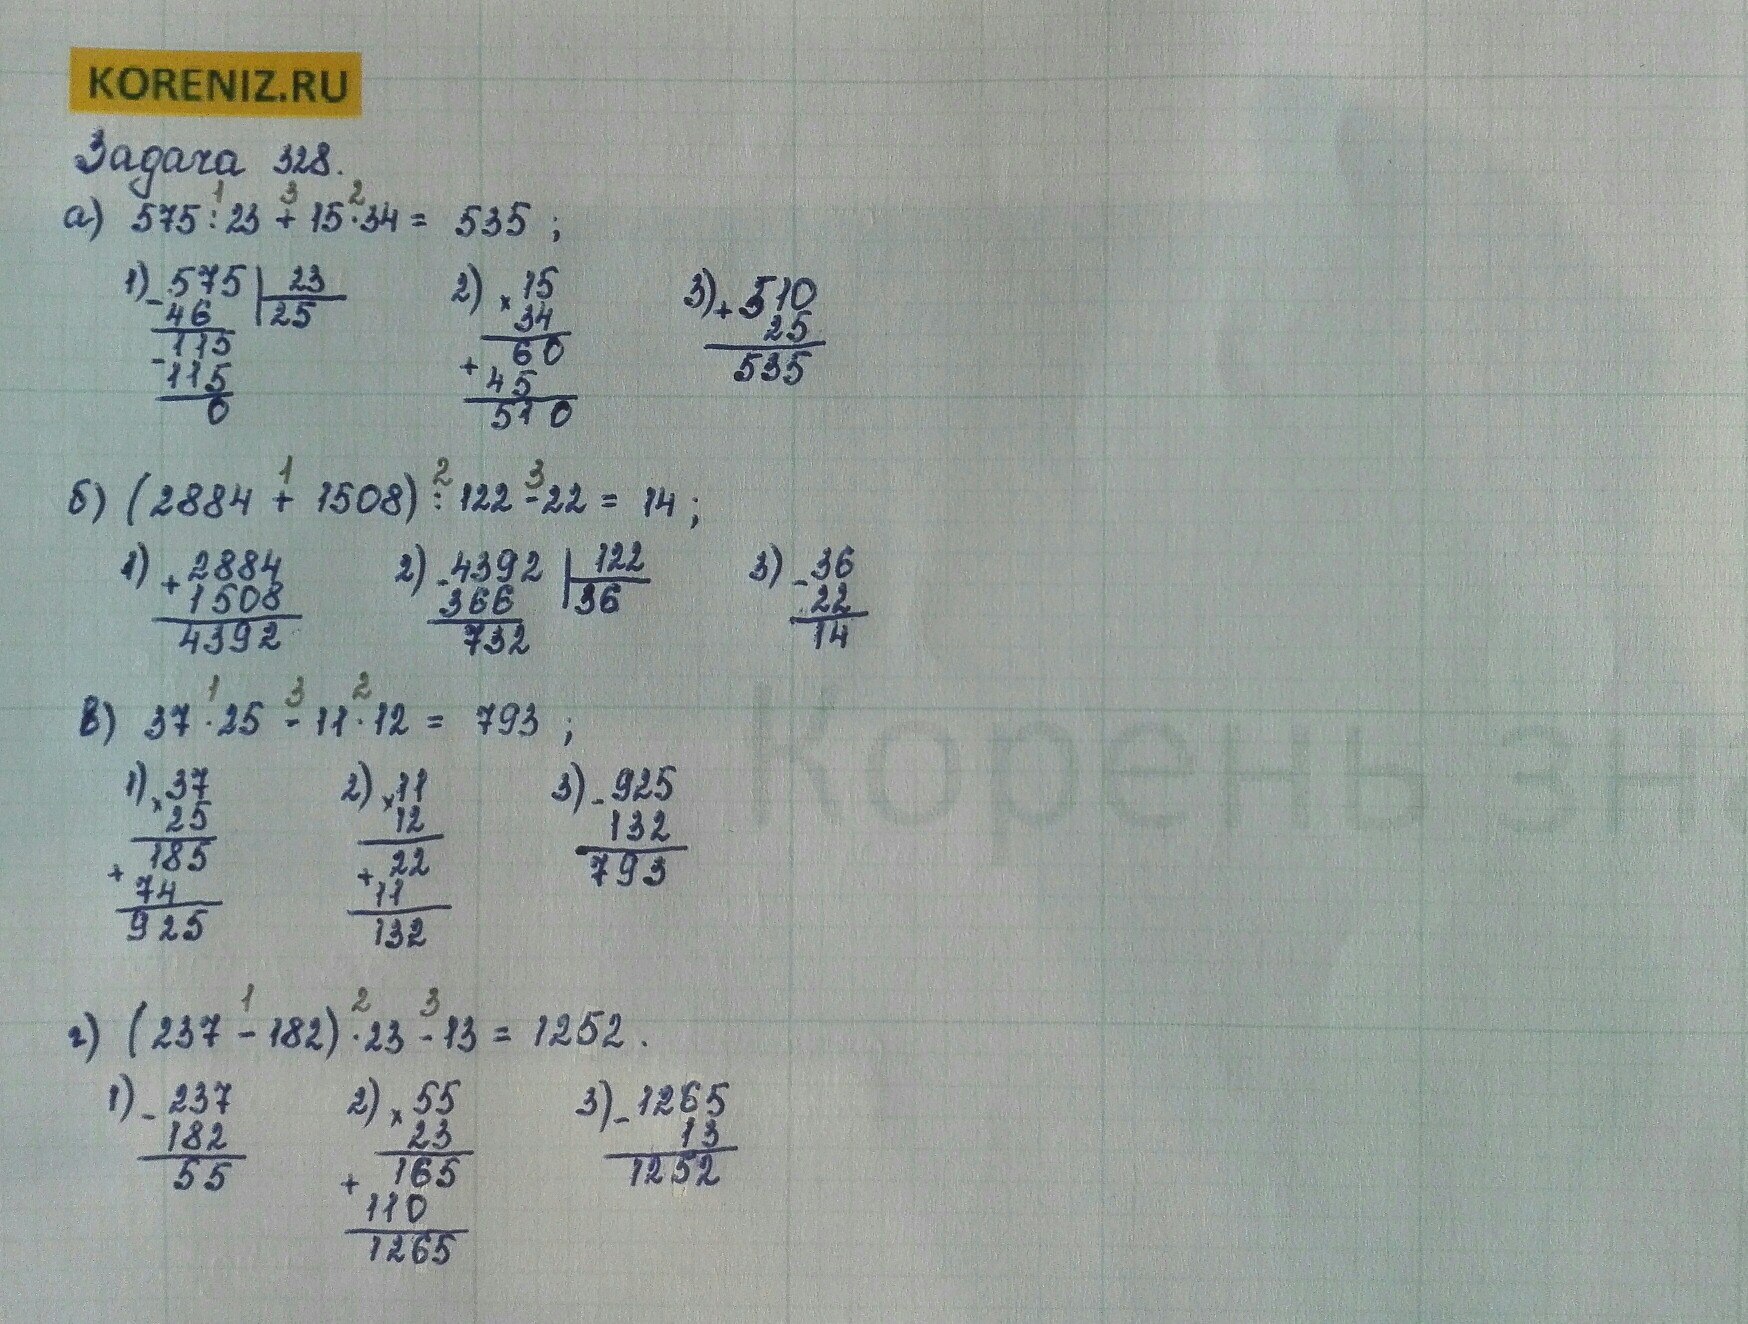 KORENIZ.RU
Задача 328.
1 3 2
а) 575 : 23 + 15 · 34 = 535 ;
1) - 575 23 2) × 15 3) + 510
46 25 34 25
- 115 60 535
115 + 45
0 510
1 2 3
б) (2884 + 1508) : 122 - 22 = 14 ;
1) + 2884 2) - 4392 122 3) - 36
1508 366 36 22
4392 732 14
1 3 2
в) 37 · 25 - 11 · 12 = 793 ;
1) × 37 2) × 11 3) - 925
25 12 132
185 + 22 793
+ 74 11
925 132
1 2 3
г) (237 - 182) · 23 - 13 = 1252 .
1) - 237 2) × 55 3) - 1265
182 23 13
55 + 165 1252
110
1265
Корень зна